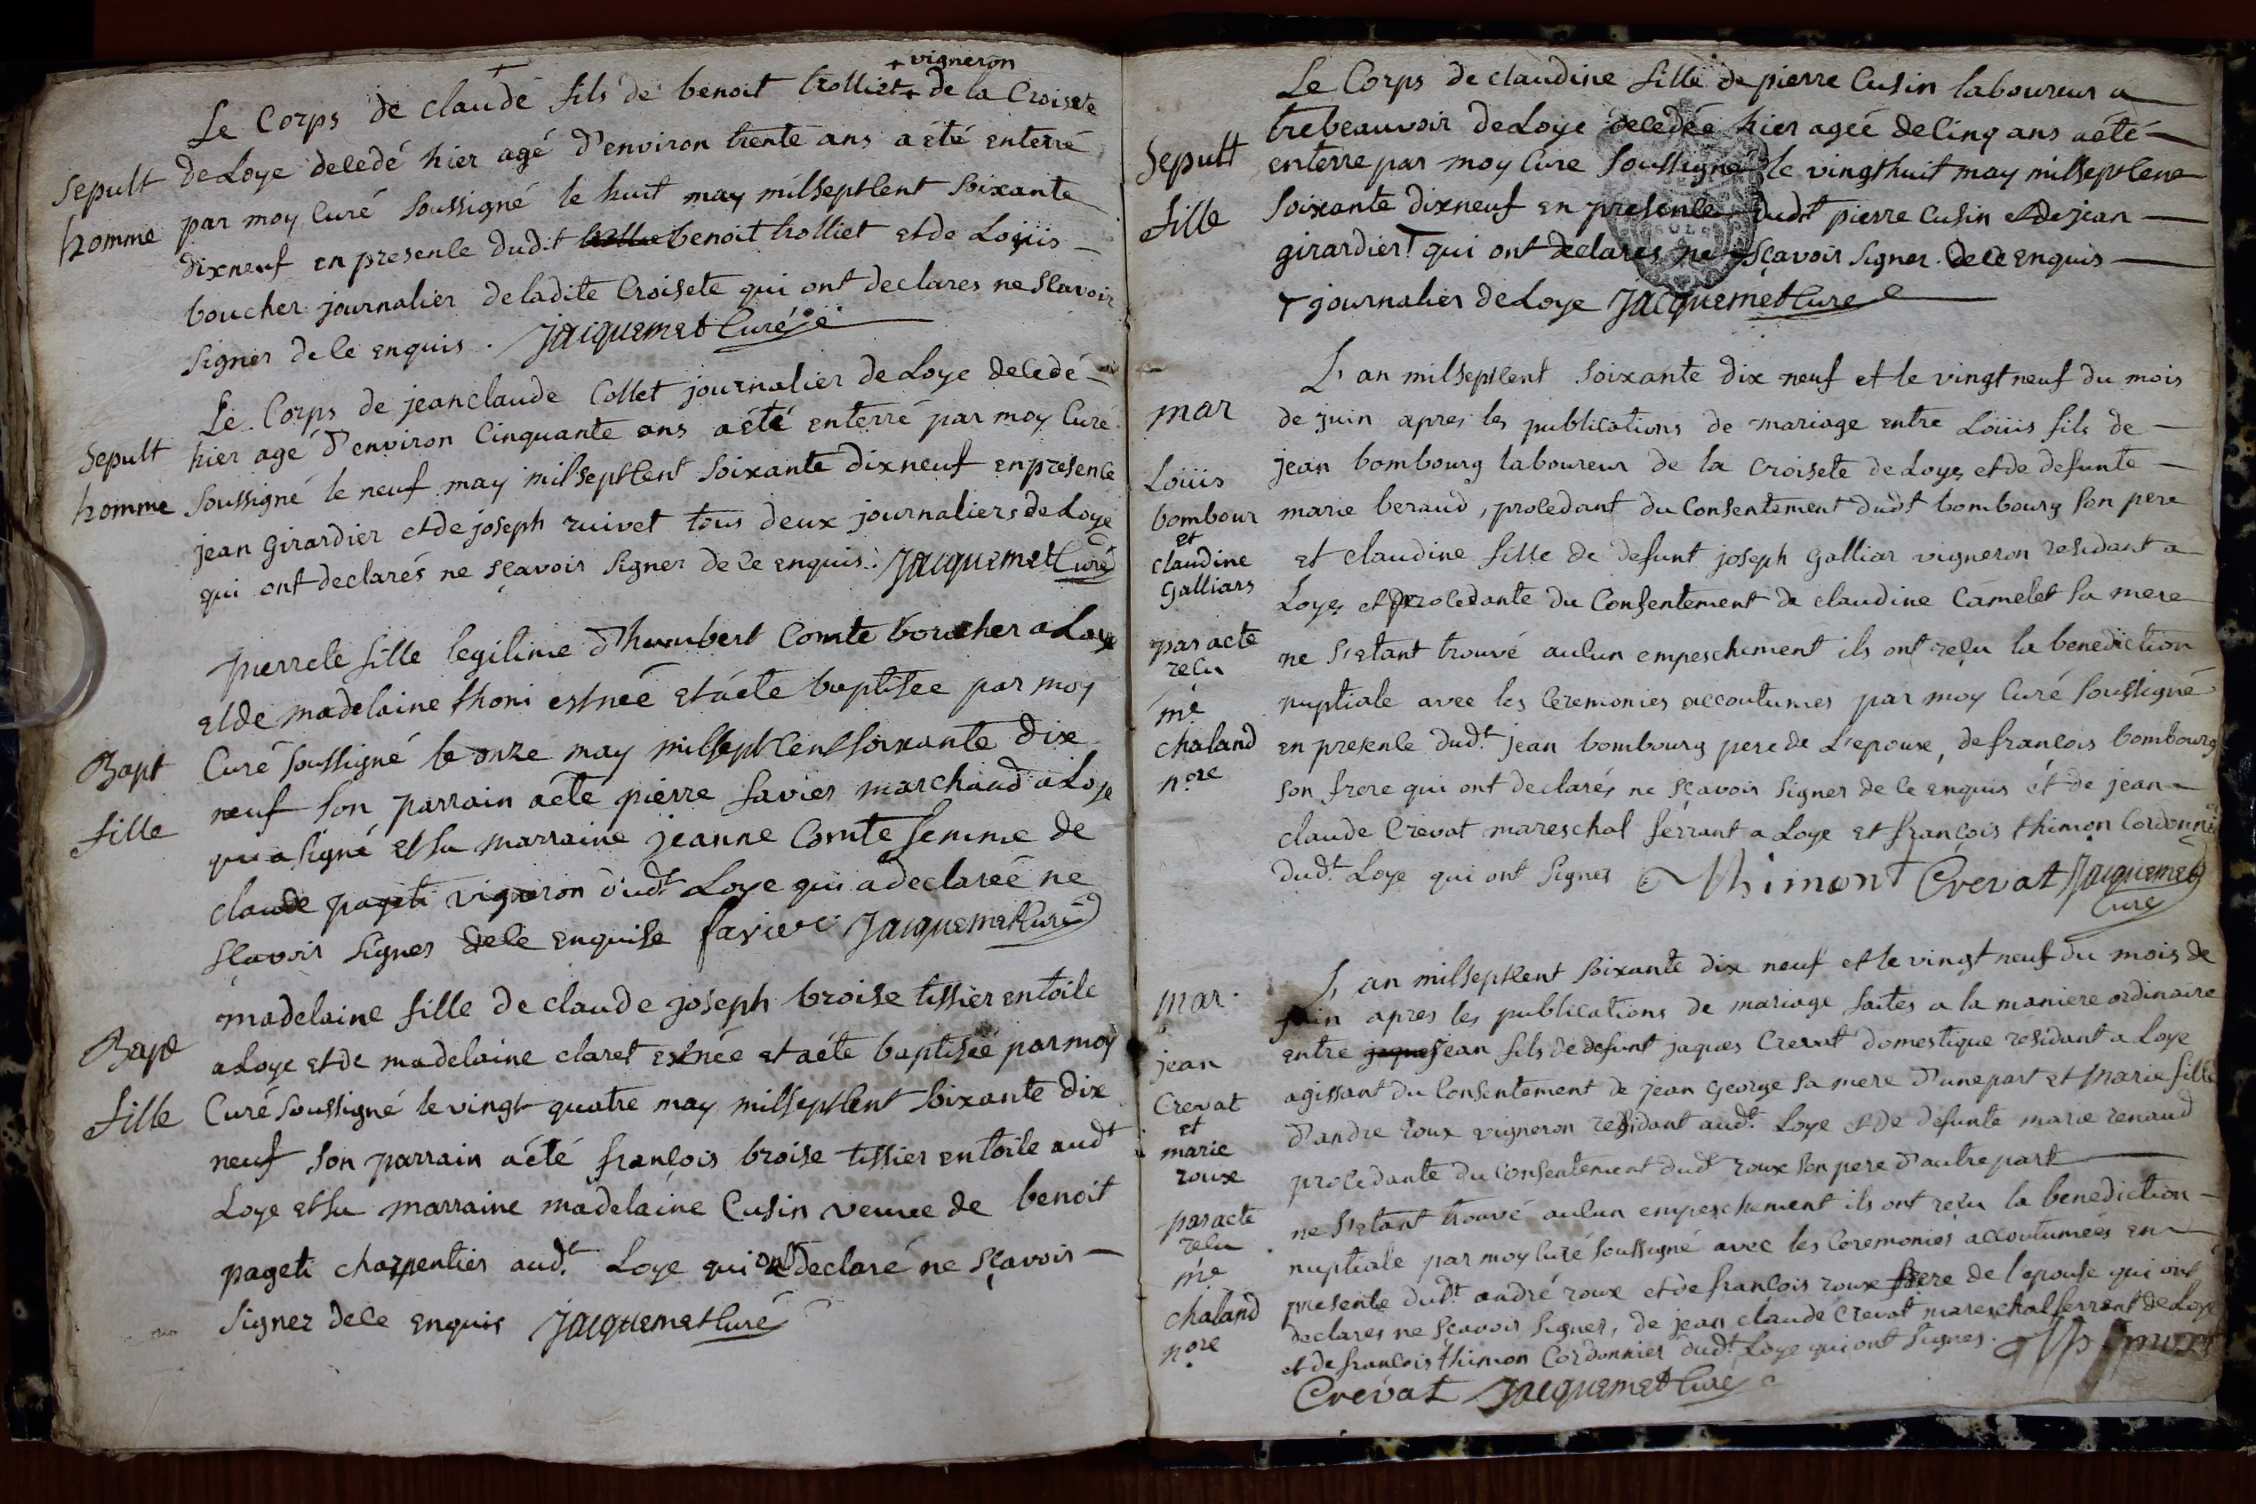 + vigneron
Le Corps de claude fils de benoit trolliet + de la Croisete
Sepult
homme
de Loye decedé hier agé d'environ trente ans a été enterré
par moy Curé soussigné le huit may milseptcent soixante
dixneuf en presence dud.t benoit trolliet et de Loüis
boucher journalier de ladite Croisete qui ont declares ne scavoir
signer de ce enquis. Jacquemet Curé
Sepult
homme
Le Corps de jeanclaude Collet journalier de Loye decedé
hier agé d'environ Cinquante ans a été enterré par moy Curé
soussigné le neuf may milseptcent soixante dixneuf en presence
jean girardier et de joseph ruivet tous deux journaliers de Loye
qui ont declarés ne sçavoir signer de ce enquis. Jacquemet Curé
Bapt
fille
pierrete fille legitime d'humbert Comte boucher a Loye
et de madelaine thoni est née et a été baptisée par moy
Curé soussigné le onze may milseptcent soixante dix
neuf son parrain a été pierre favier marchand a Loye
qui a signé et sa marraine jeanne Comte femme de
claude pageti vigneron dud.t Loye qui a declareé ne
scavoir signer de ce enquise favier Jacquemet Curé
Bapt
fille
madelaine fille de claude joseph broise tissier en toile
a Loye et de madelaine claret est née et a été baptisée par moy
Curé soussigné le vingt quatre may milseptcent soixante dix
neuf son parrain a été françois broise tissier en toile aud.t
Loye et sa marraine madelaine Cusin veuve de benoit
pageti charpentier aud.t Loye qui ont declaré ne sçavoir
signer de ce enquis Jacquemet Curé
Sepult
fille
Le Corps de claudine fille de pierre Cusin laboureur a
trebeauvoir de Loye decedée hier ageé de Cinq ans a été
enterre par moy Cure soussigné le vingthuit may milseptcent
soixante dixneuf en presence dudt pierre Cusin et de jean
girardier + qui ont declares ne sçavoir signer de ce enquis
+ journalier de Loye Jacquemet Cure
mar
Loüis
bombour
et
claudine
galliars
par acte
recu
me
chaland
n.re
L'an milseptcent soixante dix neuf et le vingt neuf du mois
de juin apres les publications de mariage entre Loüis fils de
jean bombourg laboureur de la Croisete de Loye et de defunte
marie beraud, procedant du Consentement dudt bombourg son pere
et claudine fille de defunt joseph galliar vigneron residant a
Loye et procedante du Consentement de claudine Camelet sa mere
ne s'etant trouvé aucun empeschement ils ont reçu la benediction
nuptiale avec les Ceremonies accoutumes par moy Curé soussigné
en presence dud.t jean bombourg pere de L'epoux, de francois bombourg
son frere qui ont declarés ne sçavoir signer de ce enquis et de jean
claude Crevat mareschal ferrant a Loye et françois thimon Cordonnier
dud.t Loye qui ont signes Thimont Crevat Jacquemet
Curé
mar.
jean
Crevat
et
marie
roux
par acte
recu
me
chaland
n.re
L'an milseptcent soixante dix neuf et le vingt neuf du mois de
juin apres les publications de mariage faites a la maniere ordinaire
entre jean fils de defunt jaques Crevat domestique residant a Loye
agissant du Consentement de jean george sa mere d'une part et Marie fille
d'andre roux vigneron residant aud.t Loye et de defunte marie renaud
procedante du Consentement dudt roux son pere d'autre part
ne s'etant trouvé aucun empeschement ils ont recu la benediction
nuptiale par moy Curé soussigné avec les Ceremonies accoutumées en
presence dud.t andré roux et de francois roux frere de l'epouse qui ont
declares ne sçavoir signer, de jean claude Crevat mareschal ferrant de Loye
et de francois thimon Cordonnier dud.t Loye qui ont signes. Thimont
Crevat Jacquemet Curé